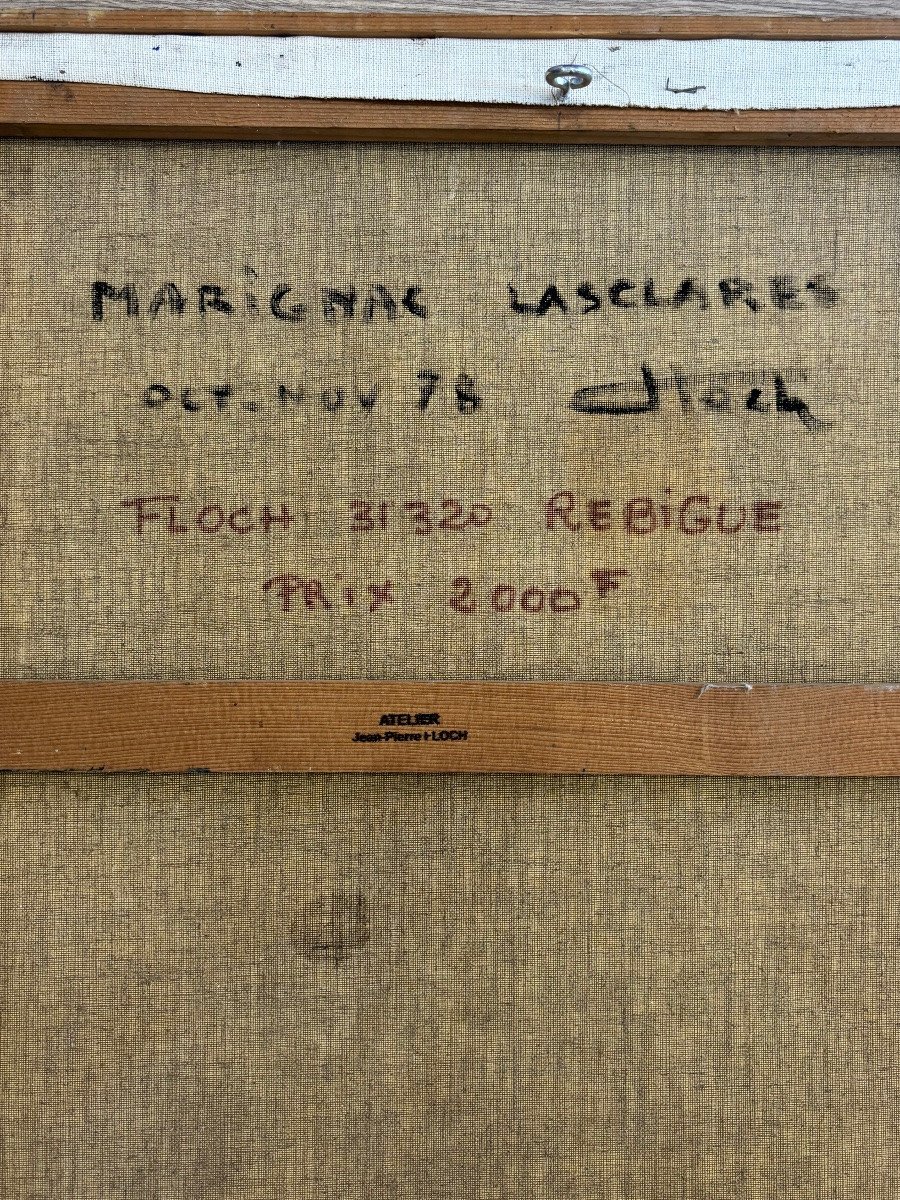 MARiGNAC LASCLARES
OCT. NOV 78 Floch
FLOCH 31320 REBiGUE
PRiX 2000F
ATELIER
Jean-Pierre FLOCH